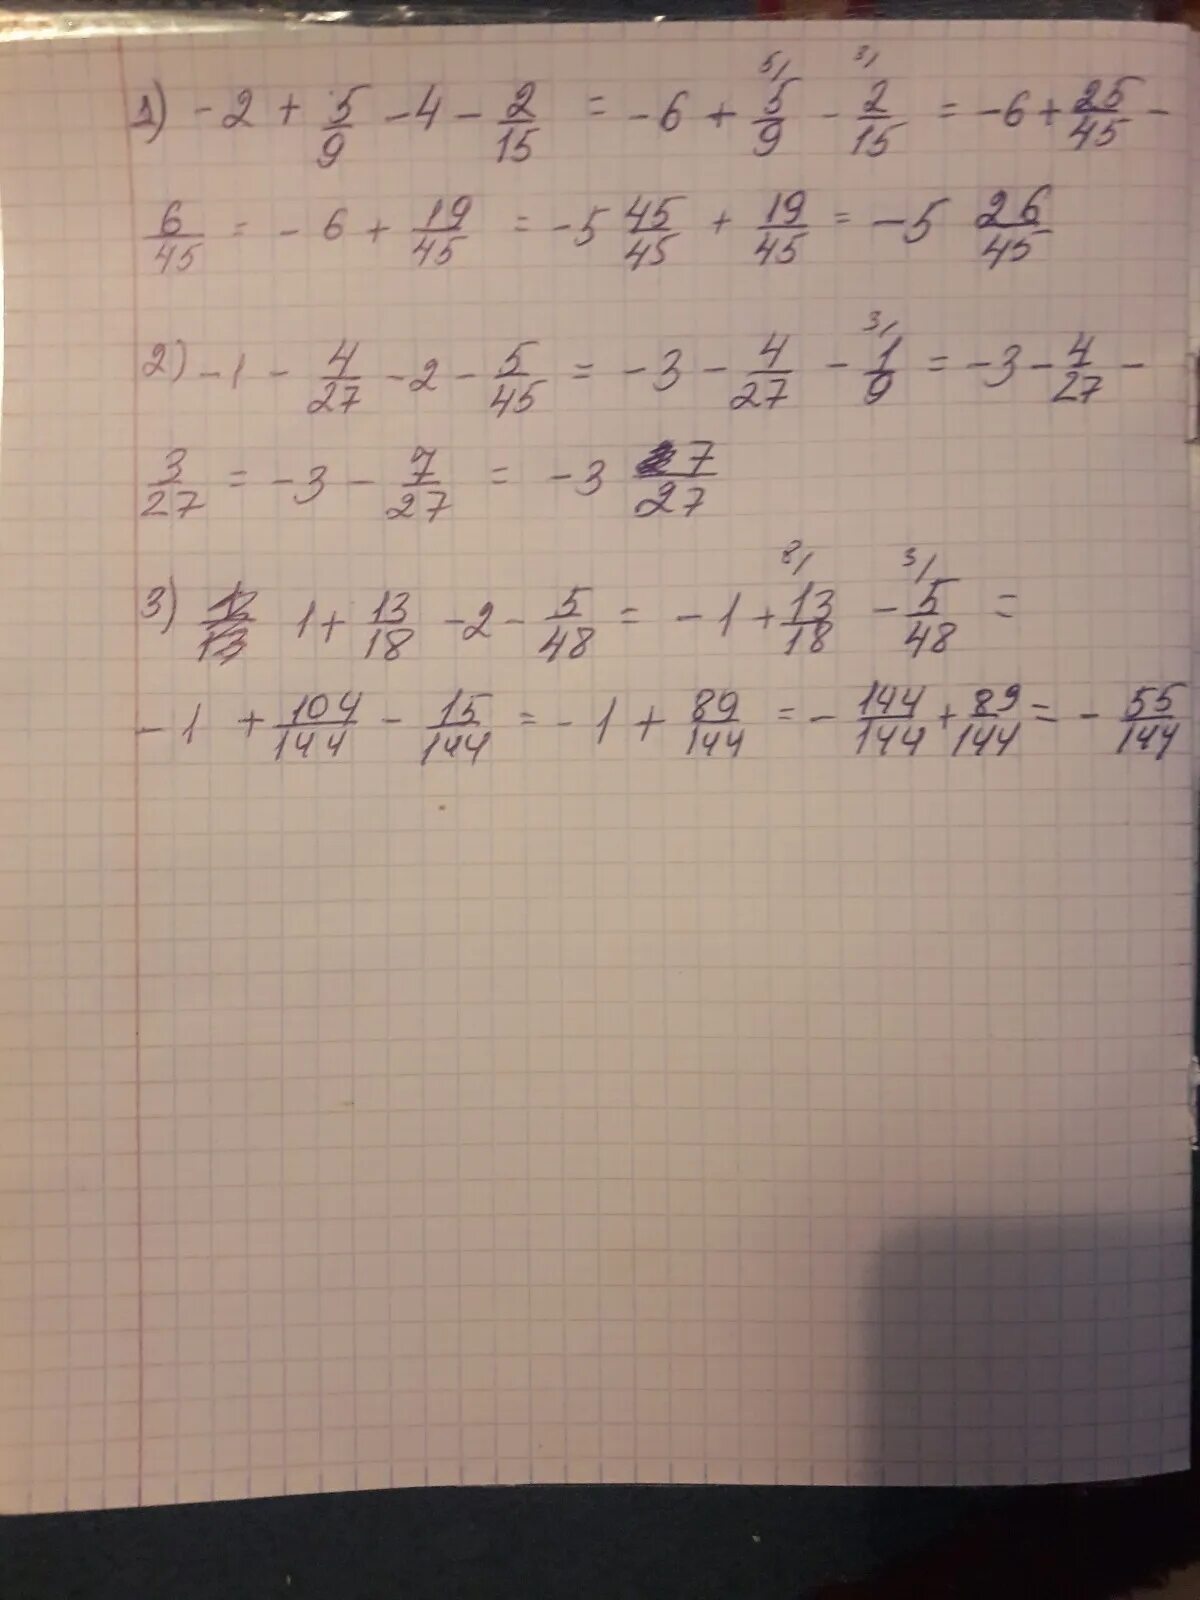 1) -2 + 5/9 -4 - 2/15 = -6 + 5/9 5/ - 2/15 3/ = -6 + 25/45 -
6/45 = -6 + 19/45 = -5 45/45 + 19/45 = -5 26/45
2) -1 - 4/27 -2 - 5/45 = -3 - 4/27 - 1/9 3/ = -3 - 4/27 -
3/27 = -3 - 7/27 = -3 7/27
3) 1 + 13/18 -2 - 5/48 = -1 + 13/18 8/ - 5/48 3/ =
-1 + 104/144 - 15/144 = -1 + 89/144 = - 144/144 + 89/144 = - 55/144